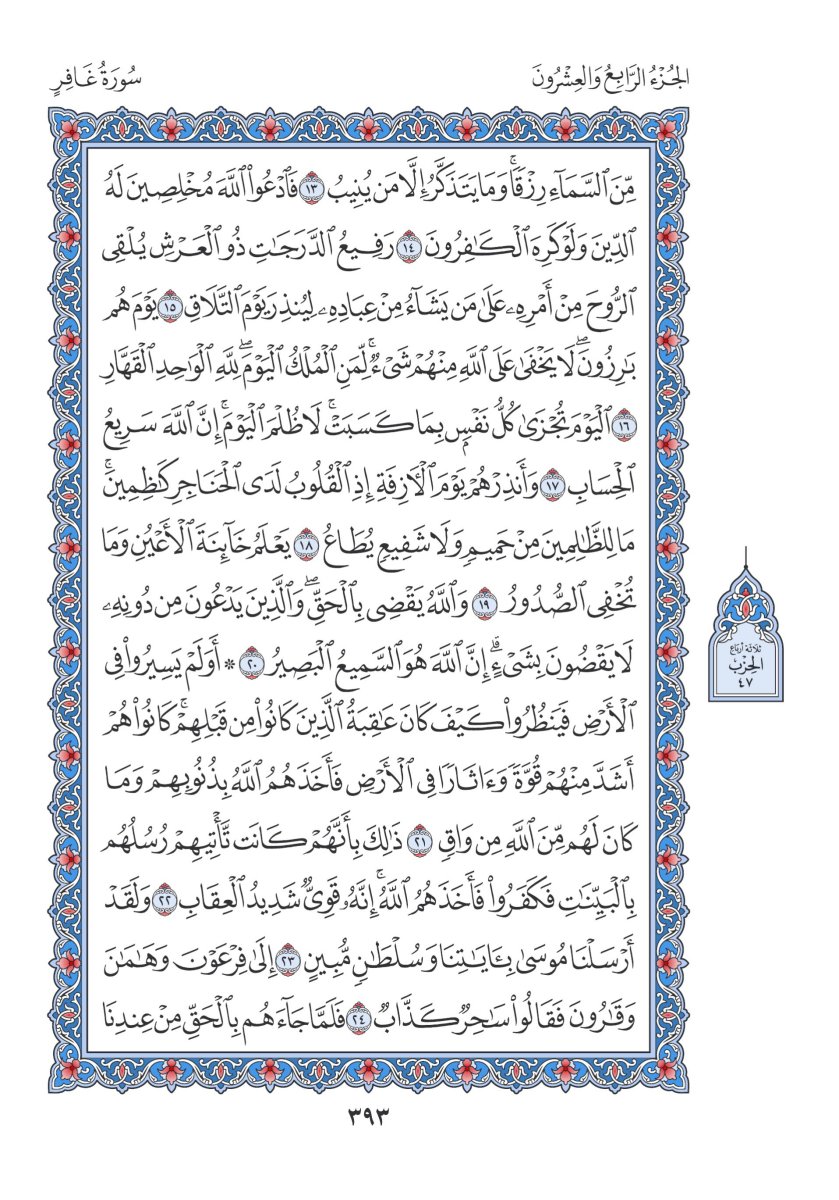 الجُزْءُ الرَّابِعُ وَالعِشْرُونَ
سُورَةُ غَافِرٍ
مِّنَ ٱلسَّمَآءِ رِزْقٗاۚ وَمَا يَتَذَكَّرُ إِلَّا مَن يُنِيبُ ١٣ فَٱدْعُواْ ٱللَّهَ مُخْلِصِينَ لَهُ
ٱلدِّينَ وَلَوْ كَرِهَ ٱلْكَٰفِرُونَ ١٤ رَفِيعُ ٱلدَّرَجَٰتِ ذُو ٱلْعَرْشِ يُلْقِي
ٱلرُّوحَ مِنْ أَمْرِهِۦ عَلَىٰ مَن يَشَآءُ مِنْ عِبَادِهِۦ لِيُنذِرَ يَوْمَ ٱلتَّلَاقِ ١٥ يَوْمَ هُم
بَٰرِزُونَۖ لَا يَخْفَىٰ عَلَى ٱللَّهِ مِنْهُمْ شَيْءٞۚ لِّمَنِ ٱلْمُلْكُ ٱلْيَوْمَۖ لِلَّهِ ٱلْوَٰحِدِ ٱلْقَهَّارِ
١٦ ٱلْيَوْمَ تُجْزَىٰ كُلُّ نَفْسِۭ بِمَا كَسَبَتْۚ لَا ظُلْمَ ٱلْيَوْمَۚ إِنَّ ٱللَّهَ سَرِيعُ
ٱلْحِسَابِ ١٧ وَأَنذِرْهُمْ يَوْمَ ٱلْأٓزِفَةِ إِذِ ٱلْقُلُوبُ لَدَى ٱلْحَنَاجِرِ كَٰظِمِينَۚ
مَا لِلظَّٰلِمِينَ مِنْ حَمِيمٖ وَلَا شَفِيعٖ يُطَاعُ ١٨ يَعْلَمُ خَآئِنَةَ ٱلْأَعْيُنِ وَمَا
تُخْفِي ٱلصُّدُورُ ١٩ وَٱللَّهُ يَقْضِي بِٱلْحَقِّۖ وَٱلَّذِينَ يَدْعُونَ مِن دُونِهِۦ
لَا يَقْضُونَ بِشَيْءٍۗ إِنَّ ٱللَّهَ هُوَ ٱلسَّمِيعُ ٱلْبَصِيرُ ٢٠ * أَوَلَمْ يَسِيرُواْ فِي
ٱلْأَرْضِ فَيَنظُرُواْ كَيْفَ كَانَ عَٰقِبَةُ ٱلَّذِينَ كَانُواْ مِن قَبْلِهِمْۚ كَانُواْ هُمْ
أَشَدَّ مِنْهُمْ قُوَّةٗ وَءَاثَارٗا فِي ٱلْأَرْضِ فَأَخَذَهُمُ ٱللَّهُ بِذُنُوبِهِمْ وَمَا
كَانَ لَهُم مِّنَ ٱللَّهِ مِن وَاقٖ ٢١ ذَٰلِكَ بِأَنَّهُمْ كَانَت تَّأْتِيهِمْ رُسُلُهُم
بِٱلْبَيِّنَٰتِ فَكَفَرُواْ فَأَخَذَهُمُ ٱللَّهُۚ إِنَّهُۥ قَوِيّٞ شَدِيدُ ٱلْعِقَابِ ٢٢ وَلَقَدْ
أَرْسَلْنَا مُوسَىٰ بِـَٔايَٰتِنَا وَسُلْطَٰنٖ مُّبِينٍ ٢٣ إِلَىٰ فِرْعَوْنَ وَهَٰمَٰنَ
وَقَٰرُونَ فَقَالُواْ سَٰحِرٞ كَذَّابٞ ٢٤ فَلَمَّا جَآءَهُم بِٱلْحَقِّ مِنْ عِندِنَا
ثلاثة أرباع
الحِزْب
٤٧
٣٩٣